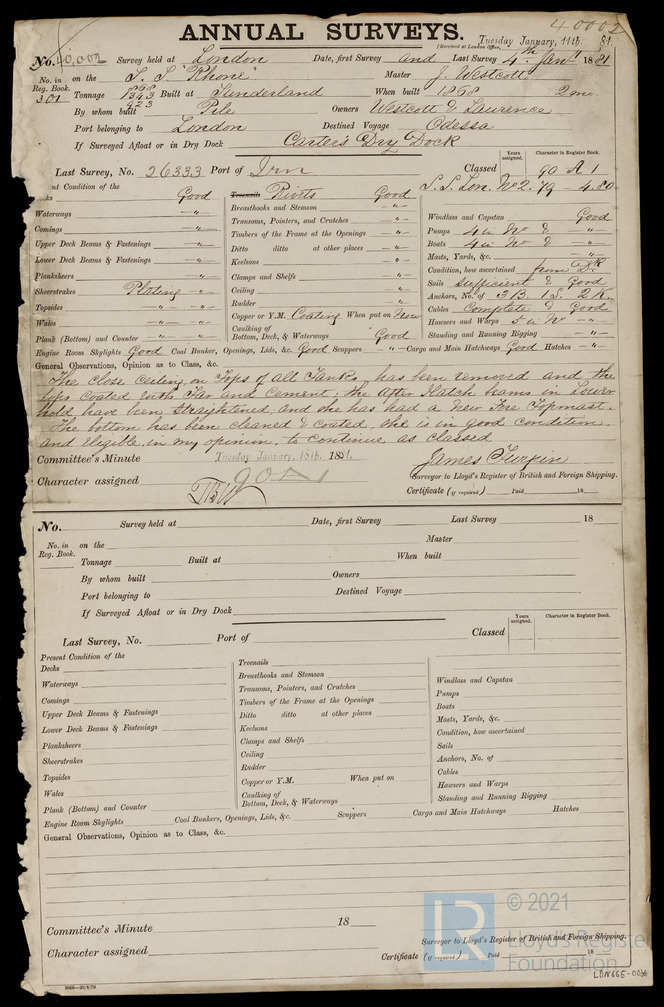 40002
ANNUAL SURVEYS.
(Received at London Office, Tuesday January, 11th 81.
No. 40,002 Survey held at London Date, first Survey and Last Survey 4th Jany 1881
No. in Reg. Book. 301 on the S. S. "Rhone" Master J. Westcott
Tonnage 868 1343 923 Built at Sunderland When built 1868 2mo
By whom built Pile Owners Westcott & Laurence
Port belonging to London Destined Voyage Odessa
If Surveyed Afloat or in Dry Dock Carters Dry Dock
Years assigned. Character in Register Book.
Last Survey, No. 26333 Port of Irn Classed 90 A 1
S.S. Lon. No2. 79 - 4.80
nt Condition of the
ks Good
Waterways - " -
Comings - " -
Upper Deck Beams & Fastenings - " -
Lower Deck Beams & Fastenings - " -
Planksheers - " -
Sheerstrakes Plating - " -
Topsides - " - - " -
Wales - " - - " -
Plank (Bottom) and Counter - " - - " -
Treenails Rivets Good
Breasthooks and Stemson - " -
Transoms, Pointers, and Crutches - " -
Timbers of the Frame at the Openings - " -
Ditto ditto at other places - " -
Keelsons - " -
Clamps and Shelfs - " -
Ceiling - " -
Rudder - " -
Copper or Y.M. Coating When put on New
Caulking of Bottom, Deck, & Waterways Good
Windlass and Capstan Good
Pumps 4 in No & - " -
Boats 4 in No & - " -
Masts, Yards, &c. - " -
Condition, how ascertained from Dk
Sails Sufficient & Good
Anchors, No. of 3 B. 1 S. 2 K.
Cables Complete & Good
Hawsers and Warps 5 in No - " -
Standing and Running Rigging - " -
Engine Room Skylights Good Coal Bunker, Openings, Lids, &c. Good Scuppers - " - Cargo and Main Hatchways Good Hatches - " -
General Observations, Opinion as to Class, &c.
The close ceiling on Tops of all Tanks has been removed and the
tops coated with Tar and Cement, the After Hatch beams in Lower
hold have been straightened, and she has had a New Fore Topmast.
The bottom has been cleaned & coated, she is in good condition,
and eligible, in my opinion, to continue as classed
Committee's Minute Tuesday January, 18th. 1881.
James Turpin
Character assigned 90 A 1
Surveyor to Lloyd's Register of British and Foreign Shipping.
Certificate (if required) Paid 18
No. Survey held at Date, first Survey Last Survey 18
No. in Reg. Book. on the Master
Tonnage Built at When built
By whom built Owners
Port belonging to Destined Voyage
If Surveyed Afloat or in Dry Dock
Years assigned. Character in Register Book.
Last Survey, No. Port of Classed
Present Condition of the
Decks
Waterways
Comings
Upper Deck Beams & Fastenings
Lower Deck Beams & Fastenings
Planksheers
Sheerstrakes
Topsides
Wales
Plank (Bottom) and Counter
Treenails
Breasthooks and Stemson
Transoms, Pointers, and Crutches
Timbers of the Frame at the Openings
Ditto ditto at other places
Keelsons
Clamps and Shelfs
Ceiling
Rudder
Copper or Y.M. When put on
Caulking of Bottom, Deck, & Waterways
Windlass and Capstan
Pumps
Boats
Masts, Yards, &c.
Condition, how ascertained
Sails
Anchors, No. of
Cables
Hawsers and Warps
Standing and Running Rigging
Engine Room Skylights Coal Bunkers, Openings, Lids, &c. Scuppers Cargo and Main Hatchways Hatches
General Observations, Opinion as to Class, &c.
Committee's Minute 18
Surveyor to Lloyd's Register of British and Foreign Shipping.
Character assigned
Certificate (if required) Paid 18
LR © 2021
Lloyd's Register
Foundation
LON665-0036